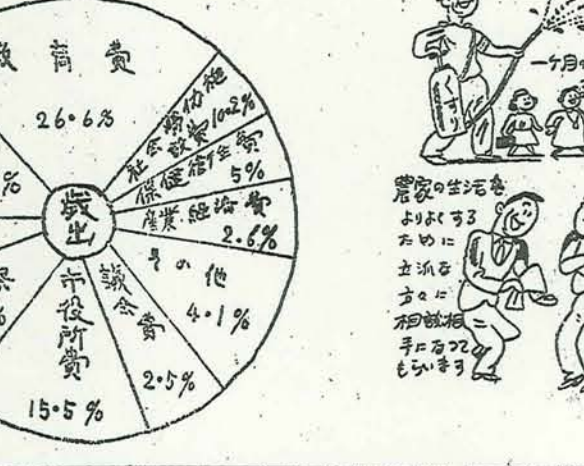 育費
26.6%
社会労働施設費 10.2%
保健衛生費
5%
産業経済費
2.6%
その他
4.1%
議会費
2.5%
市役所費
15.5%
%
%
歳出
一ケ月の
農家の生活を
よりよくする
ために
立派な
方々に
相談相
手になって
もらいます